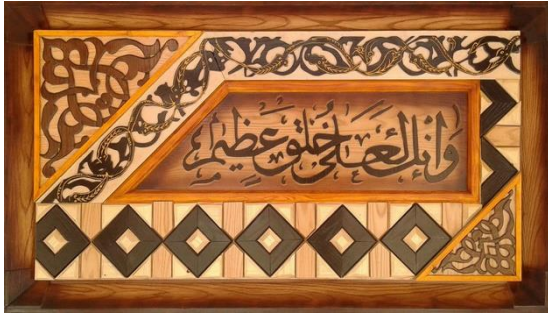 وَإنك لَعَلى خُلقٍ عَظِيمٍ